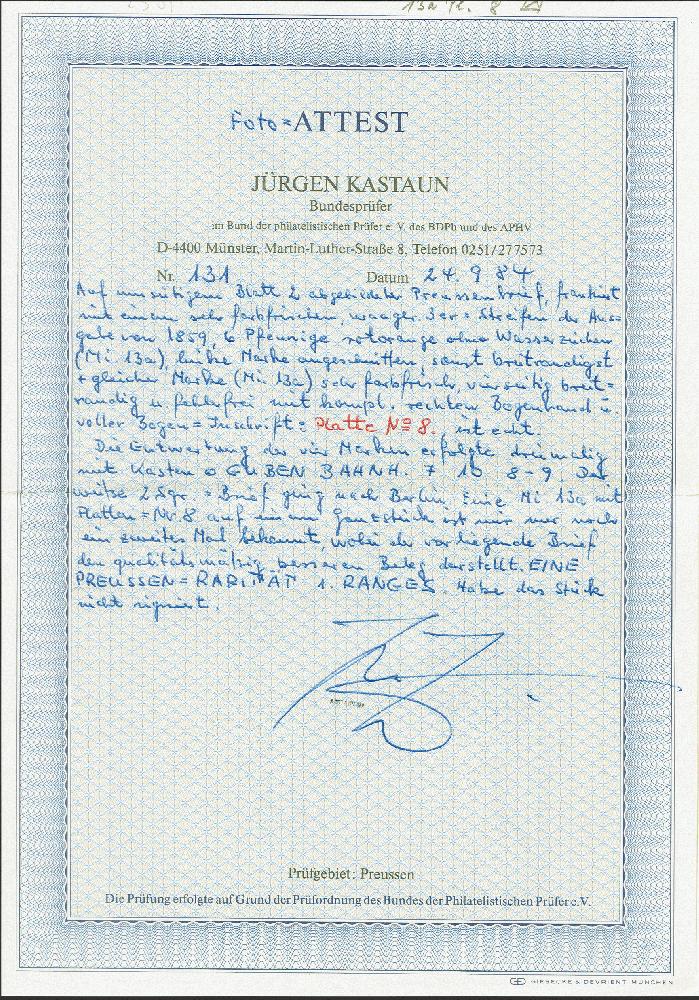 13a Pl. 8
Foto=ATTEST
JÜRGEN KASTAUN
Bundesprüfer
im Bund der philatelistischen Prüfer e. V. des BDPh und des APHV
D-4400 Münster, Martin-Luther-Straße 8, Telefon 0251/277573
Nr. 131 Datum 24. 9. 84
Auf umseitigem Blatt 2 abgebildeter Preussenbrief, frankiert
mit einem sehr farbfrischen, waager. 3er=Streifen der Aus=
gabe von 1859, 6 Pfennige rotorange ohne Wasserzeichen
(Mi. 13a), linke Marke angeschnitten, sonst breitrandigst
+ gleicher Marke (Mi. 13a) sehr farbfrisch, vierseitig breit=
randig u. fehlerfrei mit kompl. rechtem Bogenrand u.
voller Bogen=Inschrift: Platte No 8. ist echt.
Die Entwertung der vier Marken erfolgte dreimalig
mit Kasten o GUBEN BAHNH. 7 10 8-9. Der
weitse 2 Sgr.=Brief ging nach Berlin. Eine Mi 13a mit
Platten=Nr. 8 auf einem Ganzstück ist mir nur noch
ein zweites Mal bekannt, wobei der vorliegende Brief
den qualitätsmäßig besseren Beleg darstellt. EINE
PREUSSEN=RARITÄT 1. RANGES. Habe das Stück
nicht signiert.
Prüfgebiet: Preussen
Die Prüfung erfolgte auf Grund der Prüfordnung des Bundes der Philatelistischen Prüfer e.V.
GIESECKE & DEVRIENT MÜNCHEN